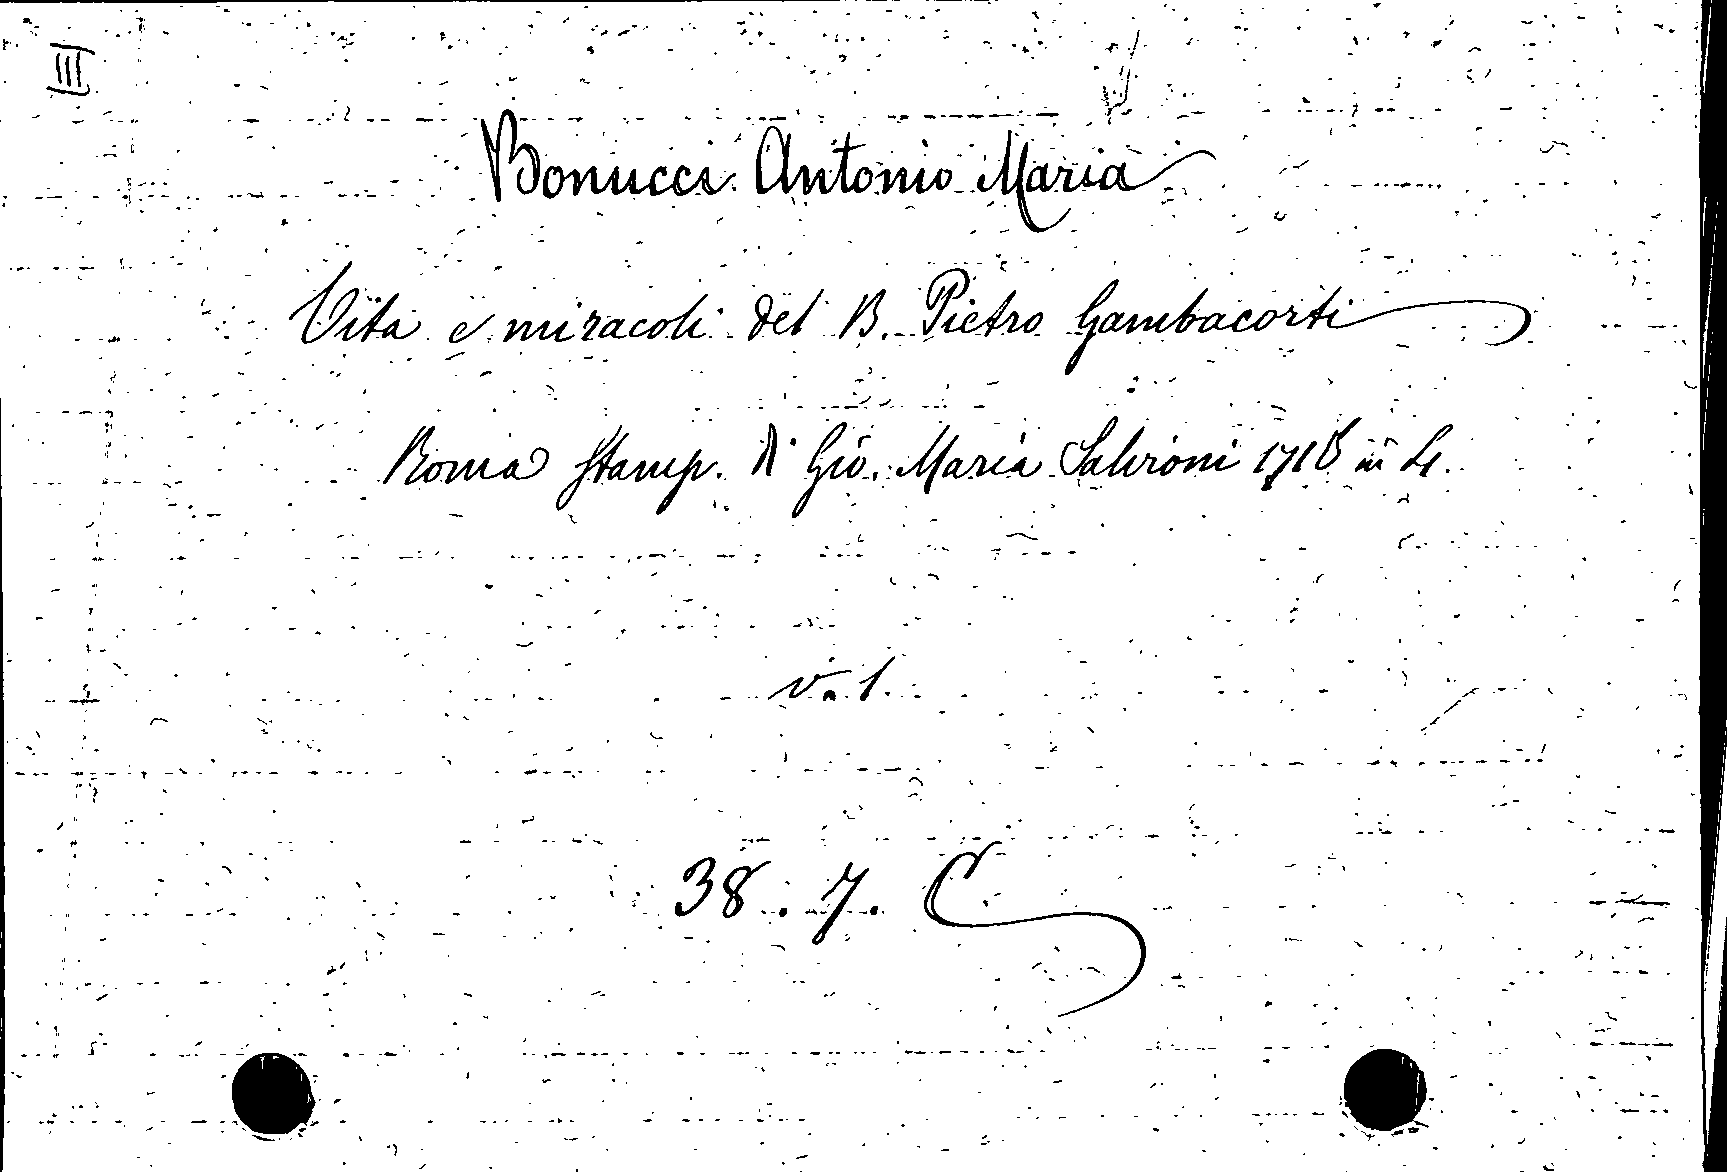 III
Bonucci Antonio Maria
Vita e miracoli del B. Pietro Gambacorti
Roma Stamp. di Gio. Maria Salvioni 1716 in 4.
v. 1.
38. 7. C